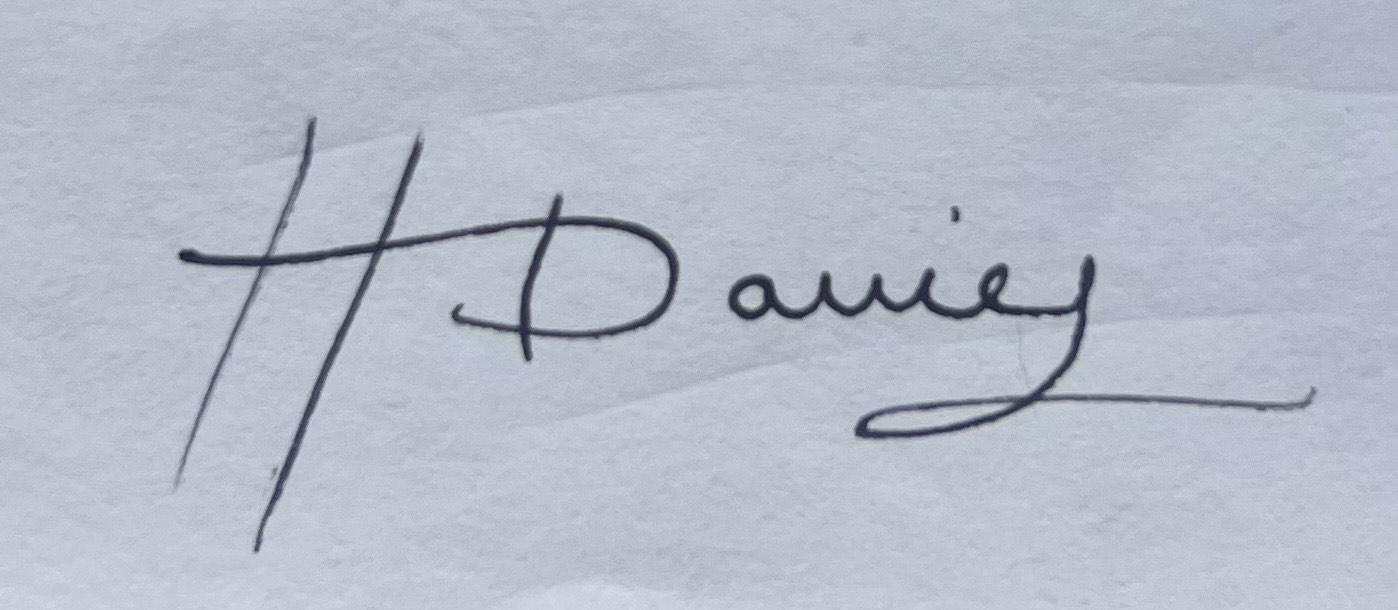 H Davies